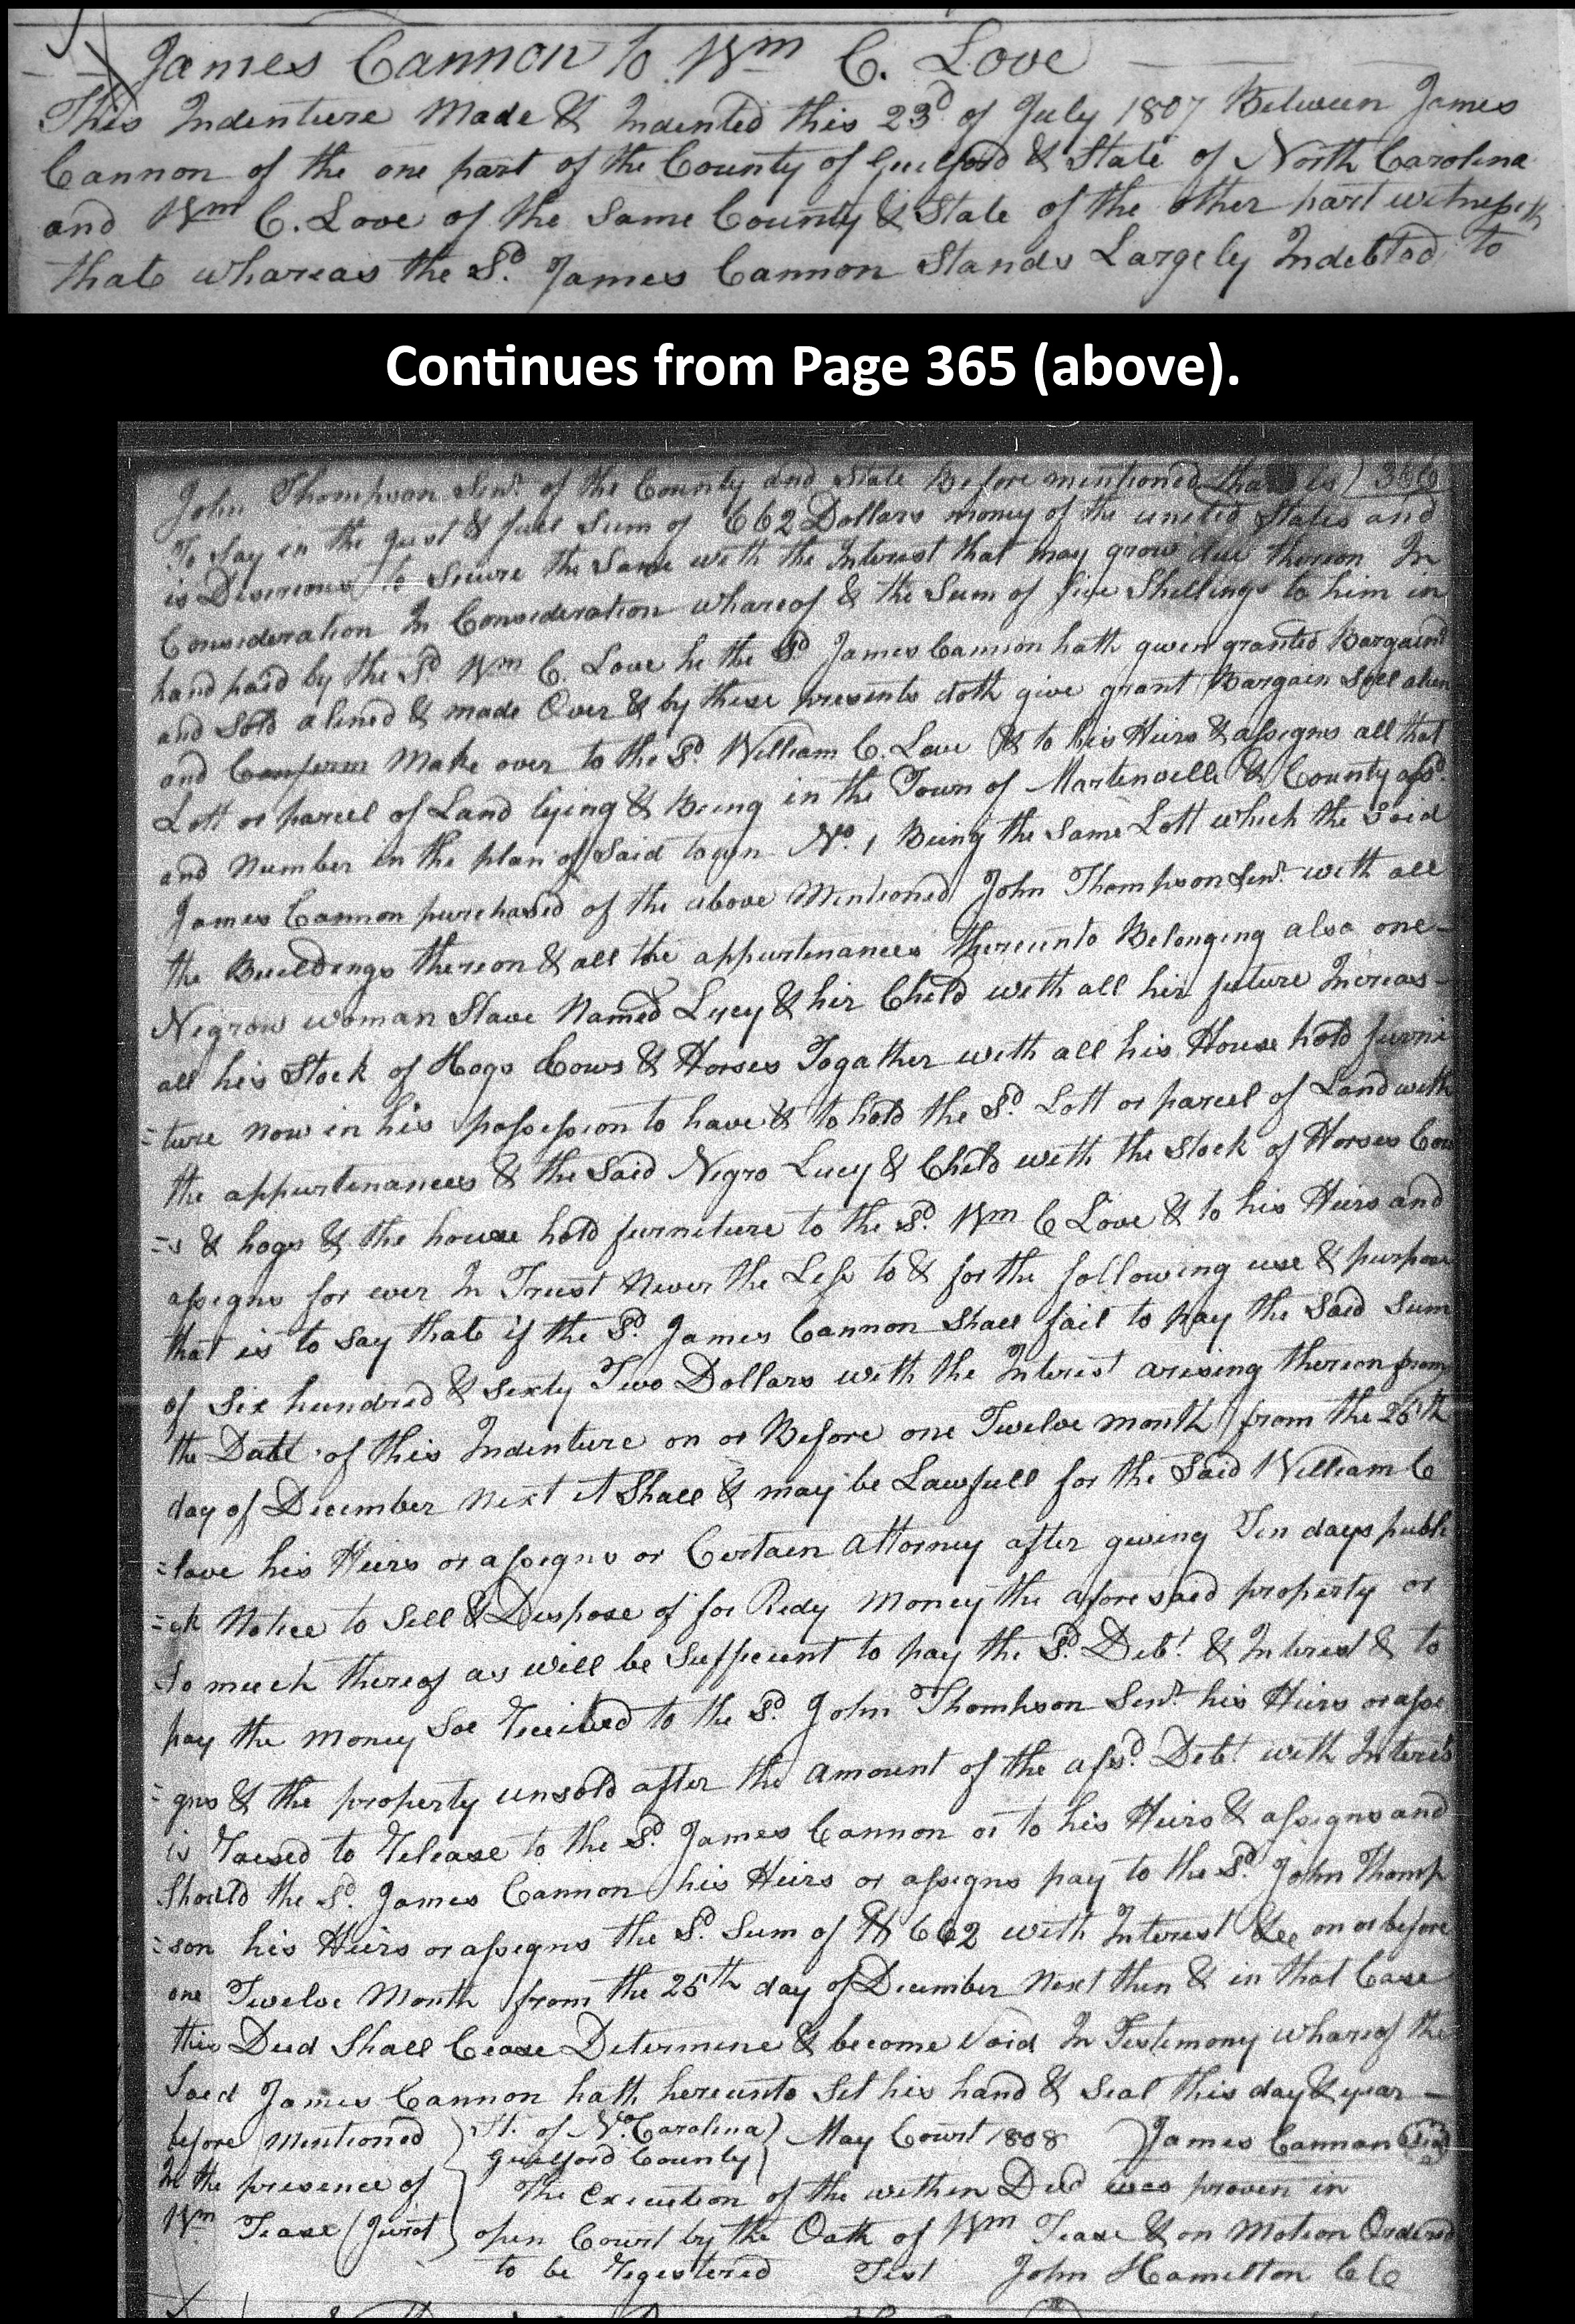 James Cannon to Wm C. Love
This Indenture Made & Indented this 23d of July 1807 Between James
Cannon of the one part of the County of Guilford & State of North Carolina
and Wm C. Love of the Same County & State of the other part witnesseth
that whareas the Sd. James Cannon Stands Largely Indebted to
Continues from Page 365 (above).
John Thompson Senr. of the County and State Before mentioned that is 366
To Say in the Just & full Sum of 662 Dollars money of the united States and
is Desireous to Secure the Same with the Interest that may grow due thereon In
Consideration In Consideration whareof & the Sum of five Shillings to him in
hand paid by the Sd Wm C. Love he the Sd James Cannon hath given granted Bargaind
and Sold aliend & made Over & by these presents doth give grant Bargain Sell alien
and Confirm Make over to the Sd. William C. Love & to his Heirs & assigns all that
Lott or parcel of Land lying & Being in the Town of Martenville & County afsd.
and Number in the plan of Said town No. 1 Being the Same Lott which the Said
James Cannon purchased of the above Mentioned John Thompson Senr. with all
the Buildings thereon & all the appurtenances thereunto Belonging also one
Negrow woman Slave Named Lucy & hir Child with all hir future Increas-
all his Stock of Hogs Cows & Horses Togather with all his House hold furni
=ture Now in his possession to have & to hold the Sd. Lott or parcel of Land with
the appurtenances & the Said Negro Lucy & Child with the Stock of Horses Cow
=s & hogs & the house hold furniture to the Sd. Wm C Love & to his Heirs and
assigns for ever In Trust Never the Less to & for the following use & purpose
that is to Say that if the Sd. James Cannon Shall fail to pay the Said Sum
of Six hundred & Sixty Two Dollars with the Interest arising thereon from
the Date of this Indenture on or Before one Twelve month from the 25th
day of December Next it Shall & may be Lawfull for the Said William C
=love his Heirs or assigns or Certain Attorney after giving Ten days publi
=ck Notice to Sell & Dispose of for Redy Money the afore said property or
So much thereof as will be Suffecient to pay the Sd. Debt. & Interest & to
pay the Money Soe Received to the Sd. John Thompson Senr. his Heirs or assi
=gns & the property unsold after the Amount of the afsd. Debt with Interest
is Raised to Release to the Sd. James Cannon or to his Heirs & assigns and
Should the Sd. James Cannon his Heirs or assigns pay to the Sd. John Thomp
=son his Heirs or assigns the Sd. Sum of $ 662 with Interest &c on or before
one Twelve Month from the 25th day of December Next then & in that Case
this Deed Shall Cease Determine & become Void In Testimony whareof the
Said James Cannon hath hereunto Set his hand & Seal this day & year
before Mentioned St. of No. Carolina May Court 1808 James Cannon Seal
In the presence of Guilford County
The Execution of the within Deed was proven in
Wm Tease Jurat open Court by the Oath of Wm Tease & on Motion Ordered
to be Registered Test John Hamilton CC